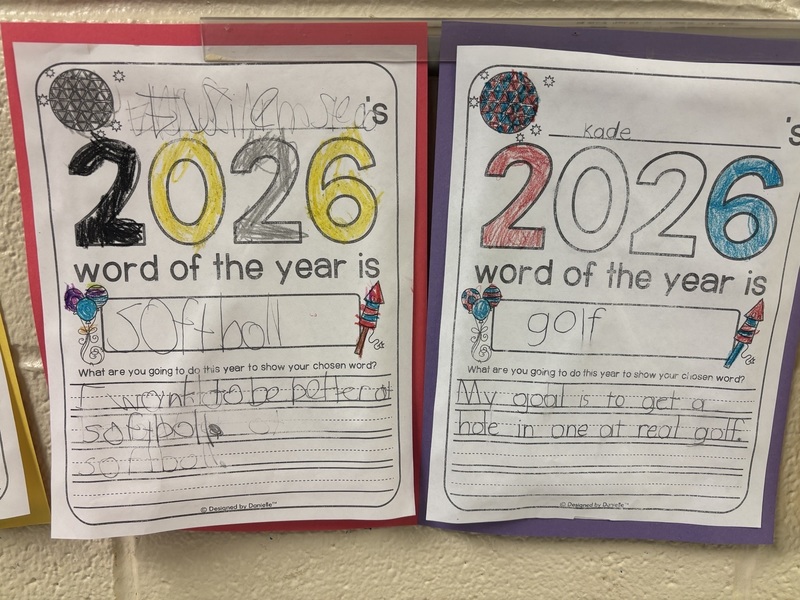 's
2026
word of the year is
softball
What are you going to do this year to show your chosen word?
I want to be better at
softball.
softball.
© Designed by Danielle™
kade 's
2026
word of the year is
golf
What are you going to do this year to show your chosen word?
My goal is to get a
hole in one at real golf.
© Designed by Danielle™